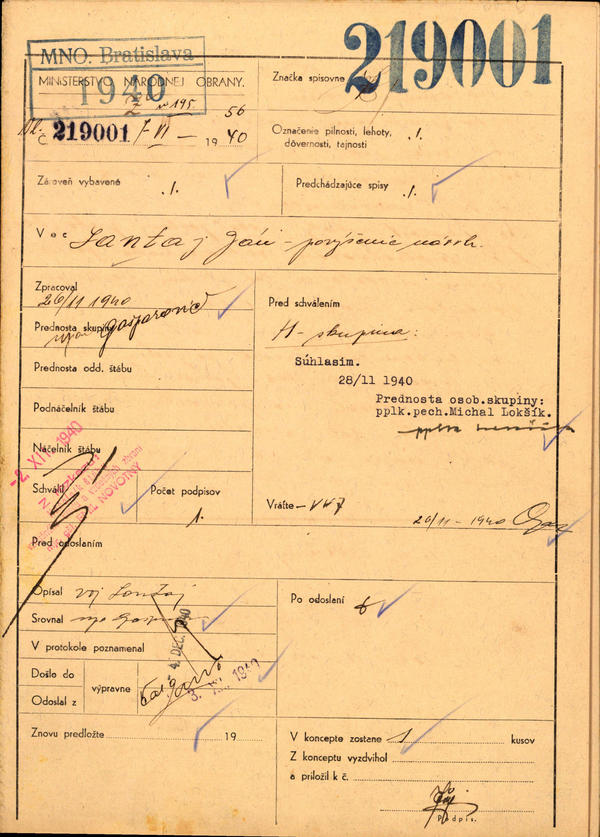 219001
MNO. Bratislava
MINISTERSTVO NÁRODNEJ OBRANY.
1940
Značka spisovne
195 56
Č. 219001 7-VI - 1940
Označenie pilnosti, lehoty, .1.
dôvernosti, tajnosti
Zároveň vybavené .1.
Predchádzajúce spisy .1.
Vec Lantaj Ján - povýšenie návrh.
Zpracoval
26/11 1940
Prednosta skupiny
Prednosta odd. štábu
Podnáčelník štábu
Náčelník štábu
-2. XII. 1940
Z rozkazu
NOVOTNÝ
Schválil
Počet podpisov
1.
Pred schválením
H-skupina:
Súhlasim.
28/11 1940
Prednosta osob.skupiny:
pplk.pech.Michal Lokšík.
Vráťte
26/11 - 1940
Pred odoslaním
Opísal voj Lantaj
Srovnal
V protokole poznamenal
Došlo do
Odoslal z
výpravne
4. DEC. 1940
3. XII. 1940
Po odoslaní
Znovu predložte 19
V koncepte zostane 1 kusov
Z konceptu vyzdvihol
a priložil k č.
Podpis.